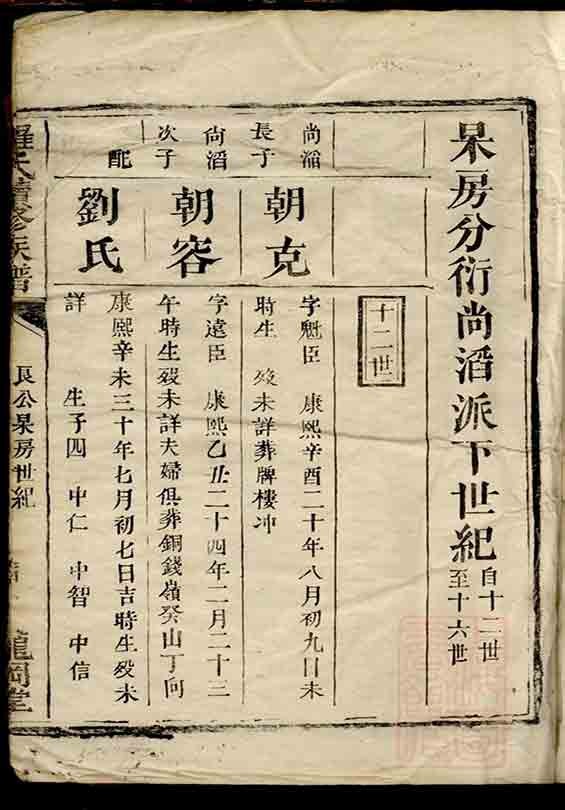 杲房分衍尚滔派下世紀
自十二世
至十六世
十二世
尚滔
長子
朝克
字魁臣　康熙辛酉二十年八月初九日未
時生　歿未詳葬牌樓冲
尚滔
次子
朝容
字遠臣　康熙乙丑二十四年二月二十三
午時生歿未詳夫婦俱葬銅錢嶺癸山丁向
配
劉氏
康熙辛未三十年七月初七日吉時生歿未
詳　生子四　中仁　中智　中信
羅氏續修族譜
良公杲房世紀
龍岡堂